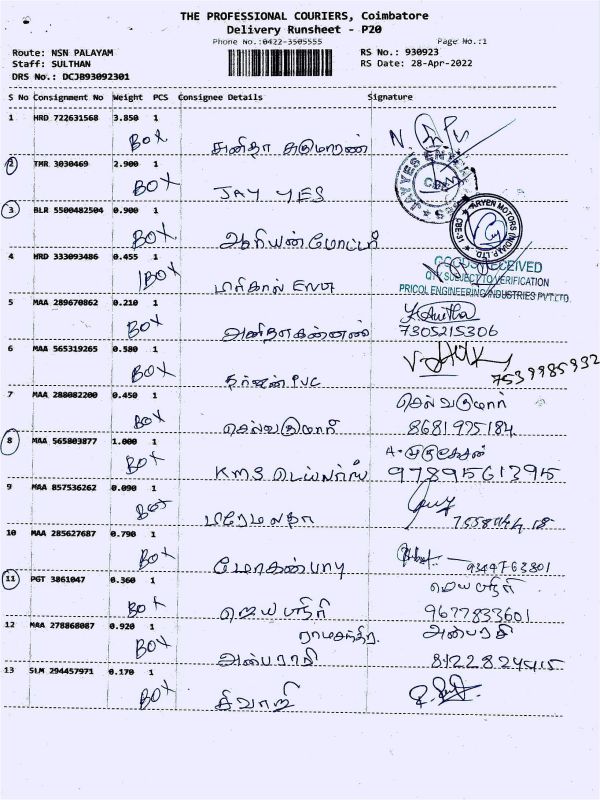 THE PROFESSIONAL COURIERS, Coimbatore
Delivery Runsheet - P20
Phone No.:0422-3505555 Page No.:1
Route: NSN PALAYAM RS No.: 930923
Staff: SULTHAN RS Date: 28-Apr-2022
DRS No.: DCJB93092301
S No Consignment No Weight PCS Consignee Details Signature
1 HRD 722631568 3.850 1
BOX
2 TMR 3030469 2.900 1
BOX JAY YES
JAY YES
3 BLR 5500482504 0.900 1
ARYEN MOTORS (INDIA) P LTD
BOX ஆரியன் மோட்டர்
4 HRD 333093486 0.455 1
GOODS RECEIVED
QTY. SUBJECT TO VERIFICATION
PRICOL ENGINEERING INDUSTRIES PVT.LTD.
BOX
5 MAA 289670862 0.210 1
K. Anitha
BOX 7305215306
6 MAA 565319265 0.580 1
BOX PVC 7539985932
7 MAA 288082200 0.450 1
செல்வகுமார்
BOX செல்வகுமார் 8681975184
8 MAA 565803877 1.000 1
BOX KMS 9789561395
9 MAA 857536262 0.090 1
BOX
10 MAA 285627687 0.790 1
BOX மோகன்பாபு 9344763801
11 PGT 3861047 0.360 1
ஜெயஸ்ரீ
BOX ஜெயஸ்ரீ 9677833601
12 MAA 278868087 0.920 1
அன்பரசி
BOX அன்பரசி 8122824415
13 SLM 294457971 0.170 1
BOX